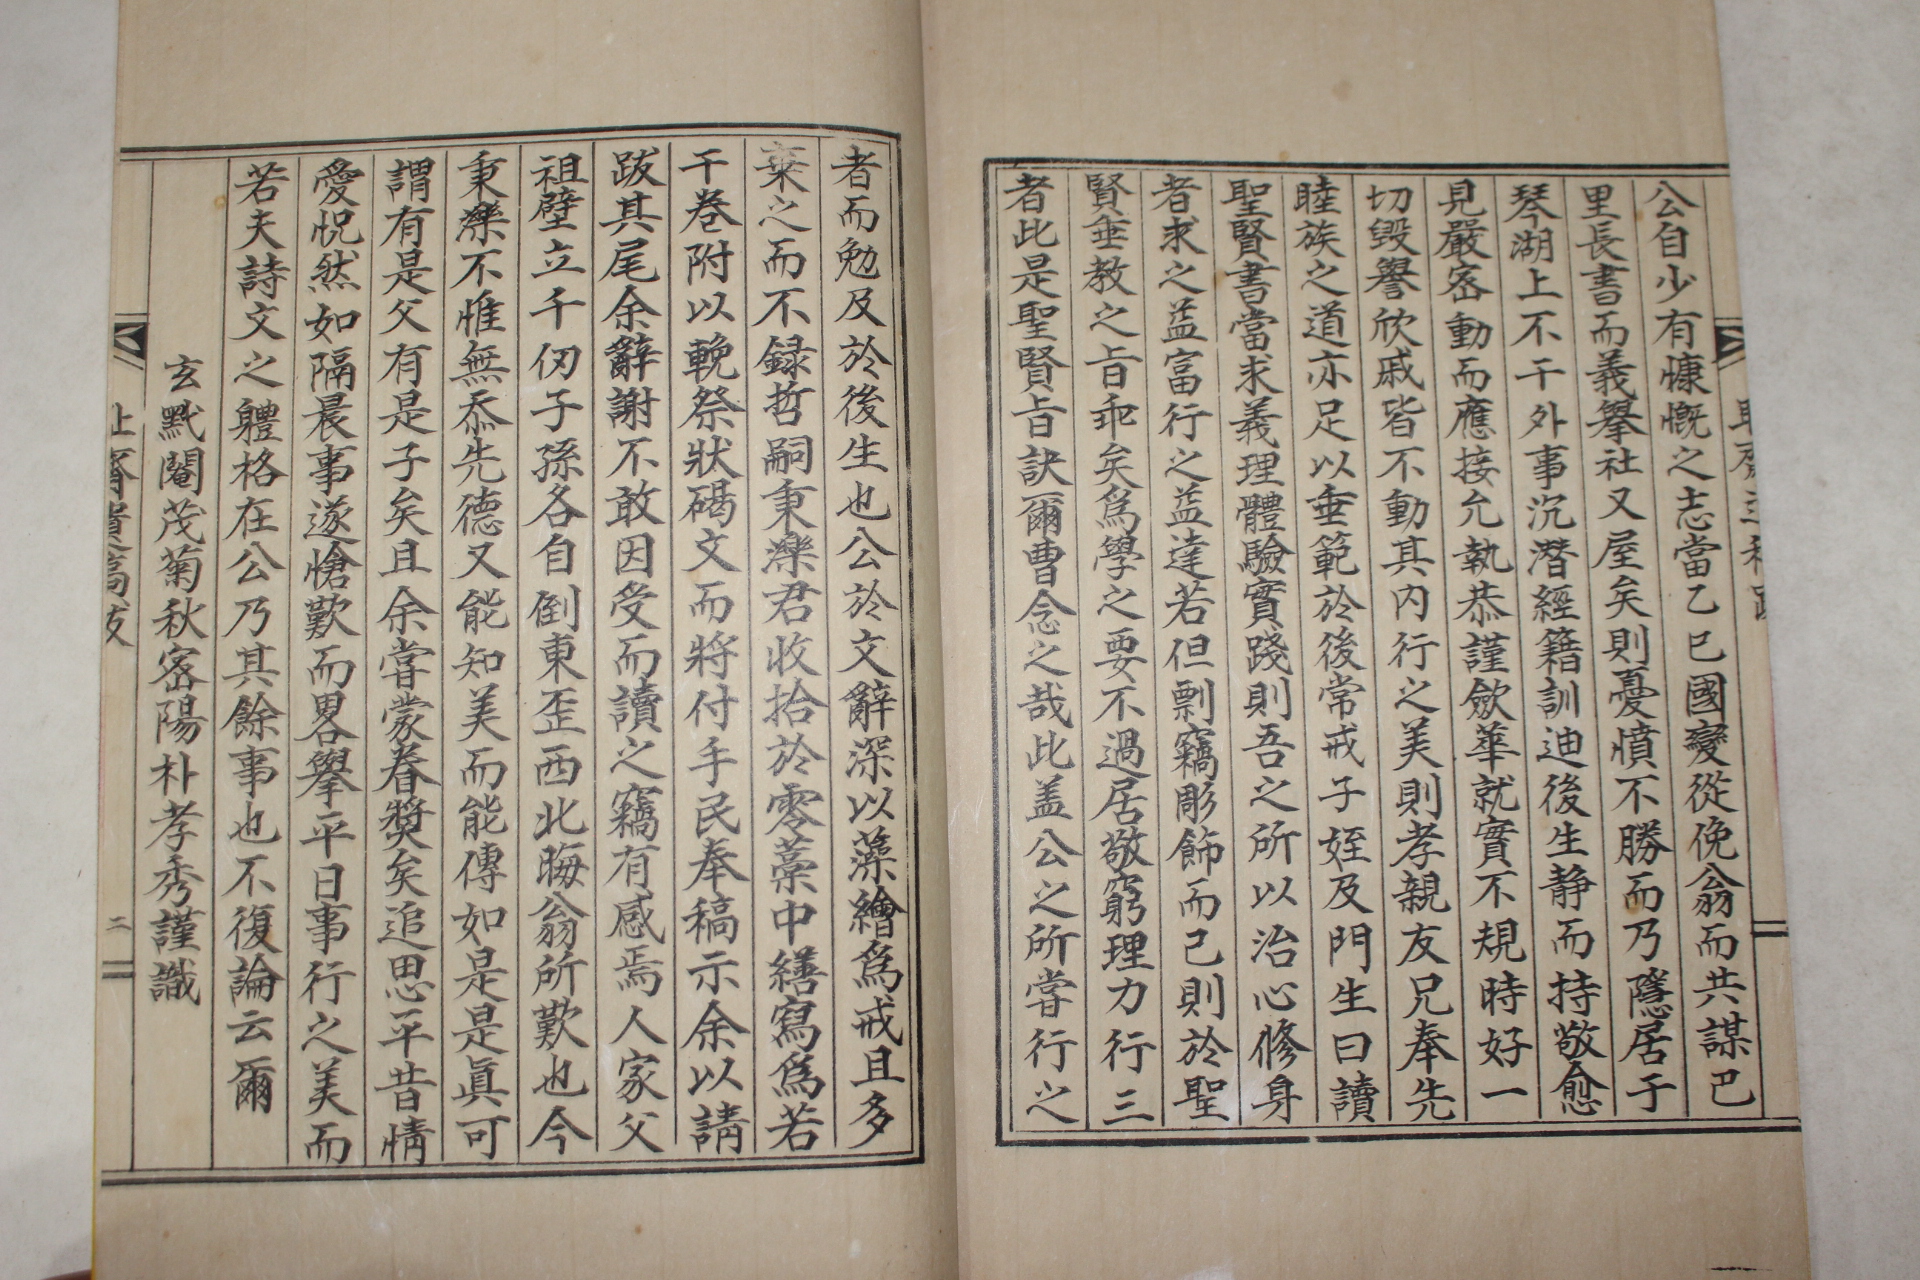 公自少有慷慨之志當乙巳國變從俛翁而共謀巴
里長書而義擧社又屋矣則憂憤不勝而乃隱居于
琴湖上不干外事沉潛經籍訓迪後生静而持敬愈
見嚴密動而應接允執恭謹斂華就實不規時好一
切毀譽欣戚皆不動其内行之美則孝親友兄奉先
睦族之道亦足以垂範於後常戒子姪及門生曰讀
聖賢書當求義理體驗實踐則吾之所以治心修身
者求之益富行之益達若但剽竊彫飾而已則於聖
賢垂教之旨乖矣爲學之要不過居敬窮理力行三
者此是聖賢旨訣爾曹念之哉此盖公之所嘗行之
者而勉及於後生也公於文辭深以藻繪爲戒且多
棄之而不録哲嗣秉濼君收拾於零藁中繕寫爲若
干卷附以輓祭狀碣文而將付手民奉稿示余以請
跋其尾余辭謝不敢因受而讀之竊有感焉人家父
祖壁立千仞子孫各自倒東歪西北晦翁所歎也今
秉濼不惟無忝先德又能知美而能傳如是是眞可
謂有是父有是子矣且余嘗蒙眷奬矣追思平昔情
愛怳然如隔晨事遂愴歎而畧擧平日事行之美而
若夫詩文之體格在公乃其餘事也不復論云爾
玄黓閹茂菊秋密陽朴孝秀謹識
齋遺稿跋
二